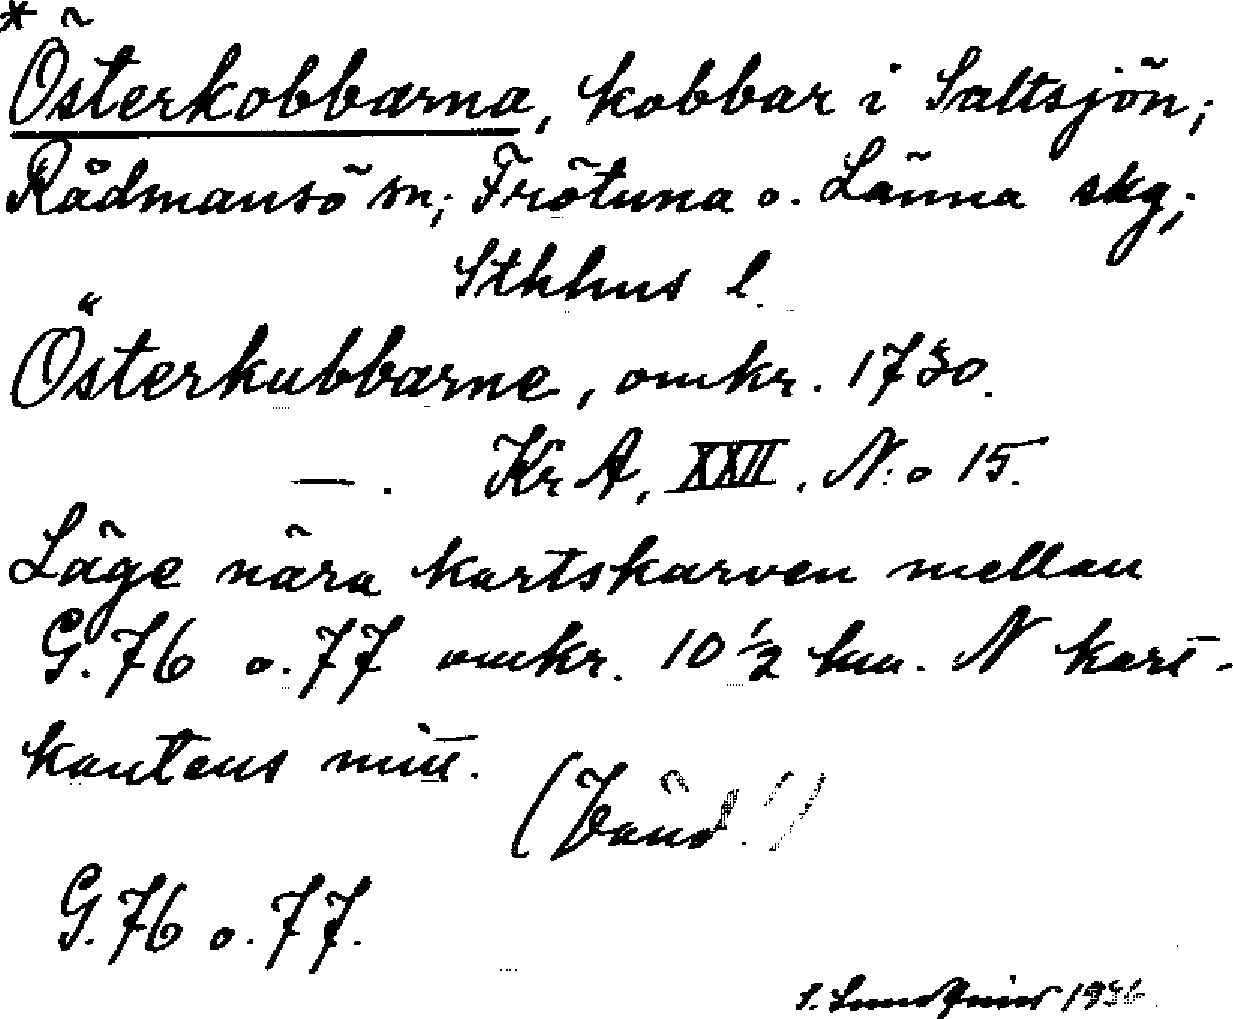 * Österkobbarna, kobbar i Saltsjön;
Rådmansö sn; Frötuna o. Länna skg;
Sthlms l.
Österkubbarne, omkr. 1730.
—. Kr A, XXII, N:o 15.
Läge nära kartskarven mellan
G. 76 o. 77 omkr. 10 1/2 km. N kart-
kantens mitt.
(Vänd!)
G. 76 o. 77.
S. Lundqvist 1936